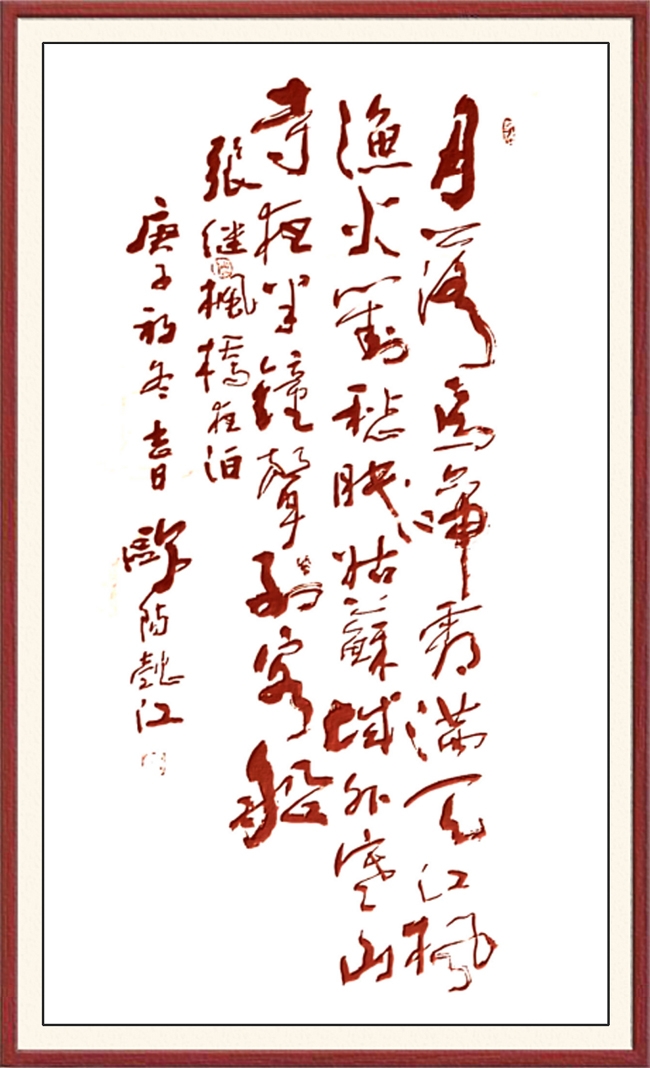 月落烏啼霜滿天江楓
漁火對愁眠姑蘇城外寒山
寺夜半鐘聲到客船
張继楓橋夜泊
庚子初冬吉日歐陽懿江